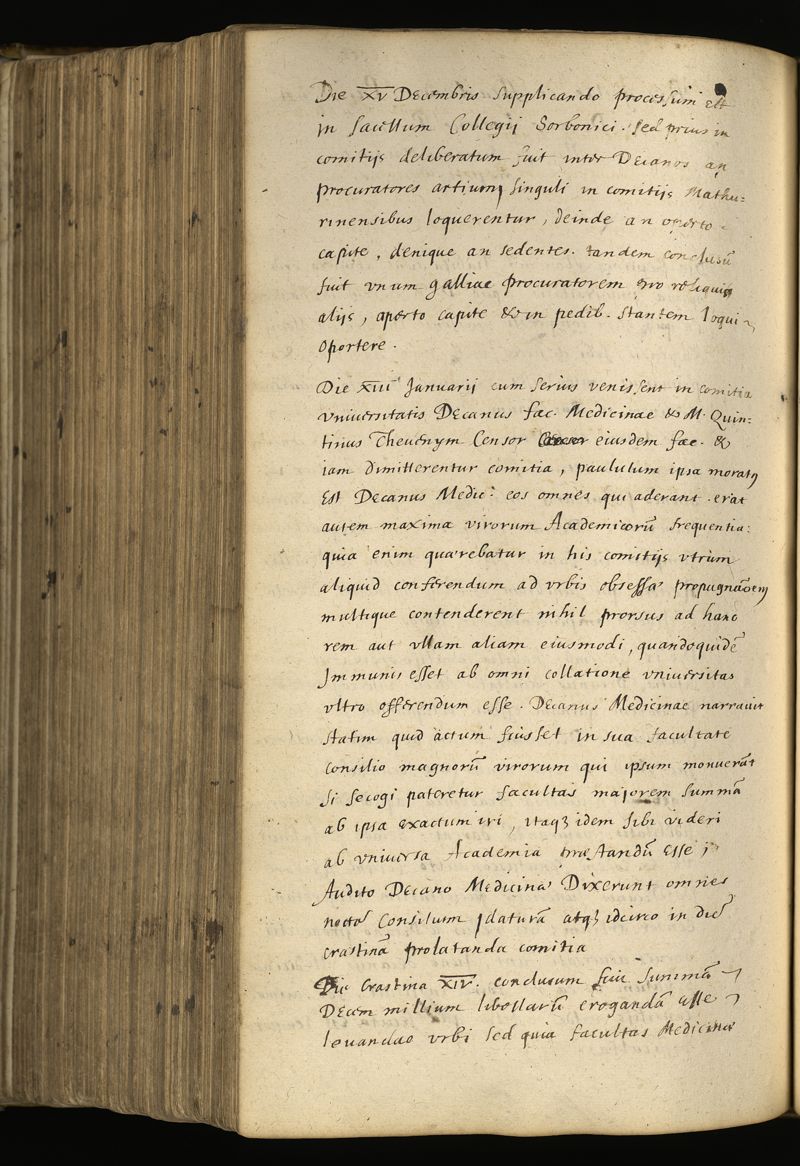 Die XV Decembris supplicando processum est
in sacellum Collegij Sorbonici. sed prius in
comitijs deliberatum fuit inter Decanos an
procuratores artium singuli in comitijs Mathu=
rinensibus loquerentur, deinde an operto
capite, denique an sedentes. tandem conclusũ
fuit vnum galliae procuratorem pro reliquis
alijs, aperto capite & in pedib. stantem loqui
oportere.
Die XIII Januarij cum serius venissent in comitia
vniuersitatis Decanus fac. Medicinae & M. Quin=
tinus Theuenym Censor eiusdem fac. &
iam dimitterentur comitia, paululum ipsa moratꝰ
Est Decanus Medic: eos omnes qui aderant. erat
autem maxima virorum Academicorũ frequentia:
quia enim quaerebatur in his comitijs vtrùm
aliquid conferendum ad vrbis obsessae propugnãoem
multique contenderent nihil prorsus ad hanc
rem aut vllam aliam eiusmodi, quandoquidẽ
Immunis esset ab omni collatione vniuersitas
vltro offerendum esse. Decanus Medicinae narrauit
statim quid actum fuisset in sua facultate
Consilio magnorũ virorum qui ipsum monuerãt
si se cogi pateretur facultas majorem summã
ab ipsa exactum iri, itaqꝫ idem sibi videri
ab vniuersa Academia praestandũ esse
Audito Decano Medicinae Dixerunt omnes
noctẽ Consilium daturã atqꝫ idcirco in diẽ
crastinã prolatanda comitia
Die Crastina XIV. conclusum fuit summã
Decem millium libellarũ erogandã esse
leuandae vrbi sed quia facultas Medicinae